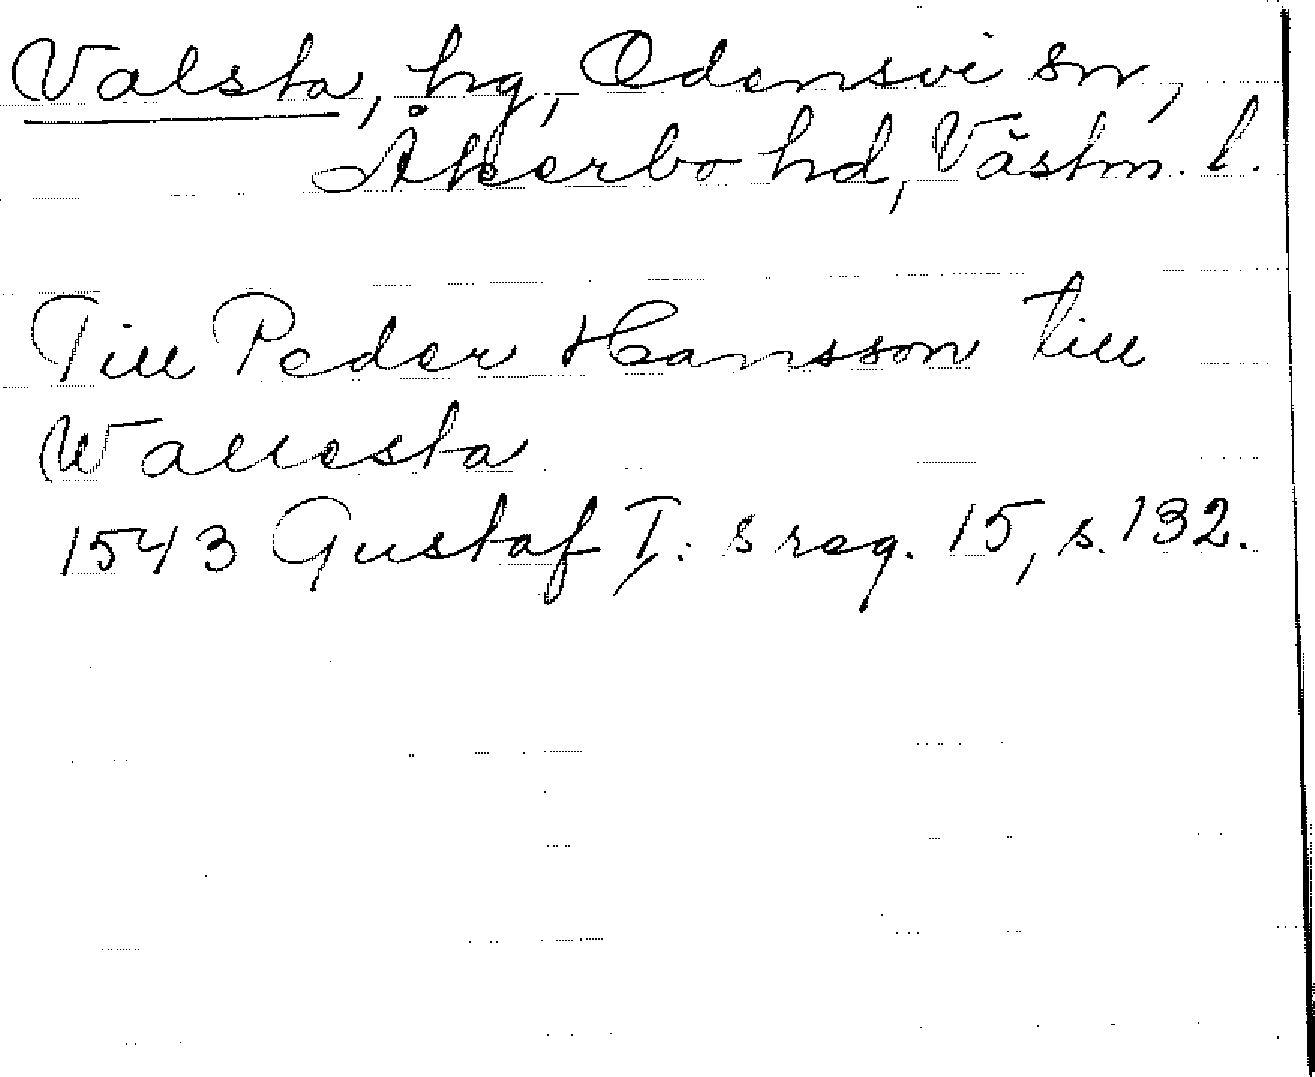 Valsta, hg, Odensvi sn,
Åkerbo hd, Västm. l.
Till Peder Hansson till
Wallesta
1543 Gustaf I:s reg. 15, s. 132.